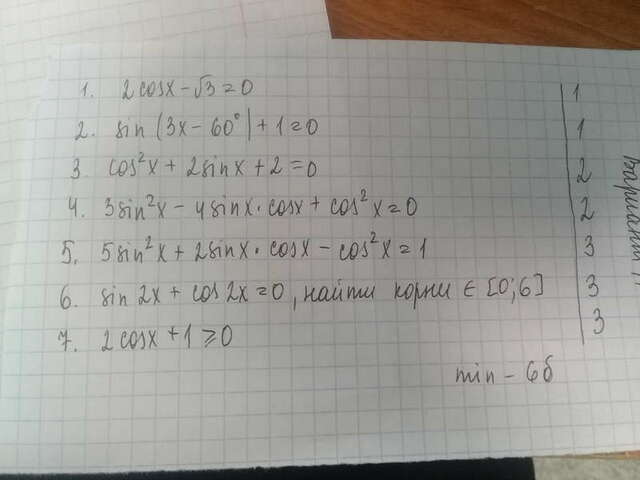 1. 2cosx - √3 = 0 1
2. sin (3x - 60°) + 1 = 0 1
3. cos²x + 2sinx + 2 = 0 2
4. 3sin²x - 4sinx · cosx + cos²x = 0 2
5. 5sin²x + 2sinx · cosx - cos²x = 1 3
6. sin 2x + cos 2x = 0, найти корни ∈ [0; 6] 3
7. 2cosx + 1 ≥ 0 3
min - 6б